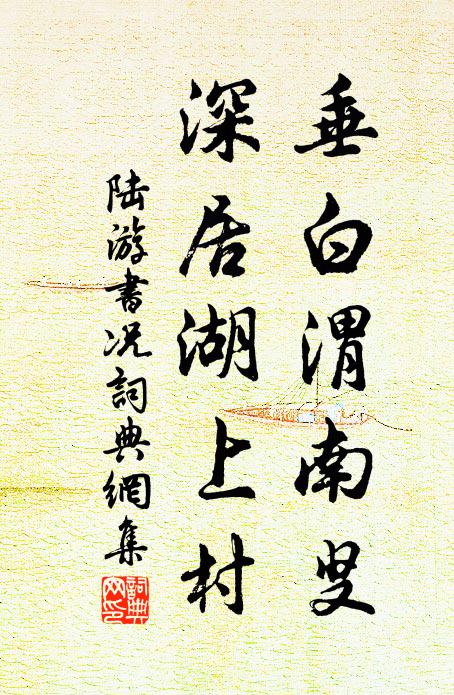 垂白渭南叟
深居湖上村
陆游書况詞典網集
詞典网印